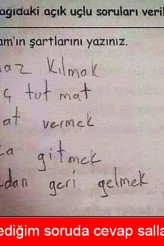 ağıdaki açık uçlu soruları
am'ın şartlarını yazınız.
az kılmak
ç tut mat
at vermek
gitmek
dan geri gelmek
ediğim soruda cevap salla